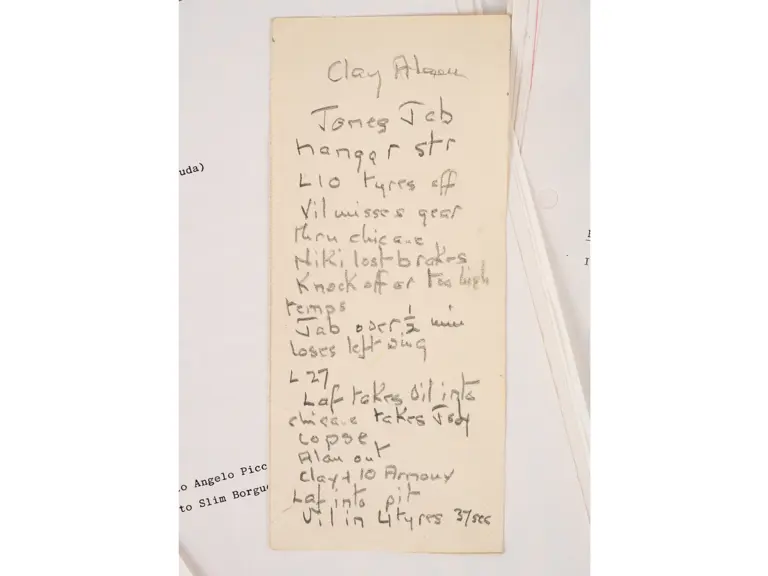 Clay Alan
Jones Jab
hangar str
L10 tyres off
Vil misses gear
thru chicane
Niki lost brakes
Knock off or too high
temps
Jab over ½ min
loses left wing
L 27
Laf takes Vil into
chicane takes Jody
copse
Alan out
Clay + 10 Armoux
Laf into pit
Vil in 4 tyres 37sec
uda)
o Angelo Picc
to Slim Borgu